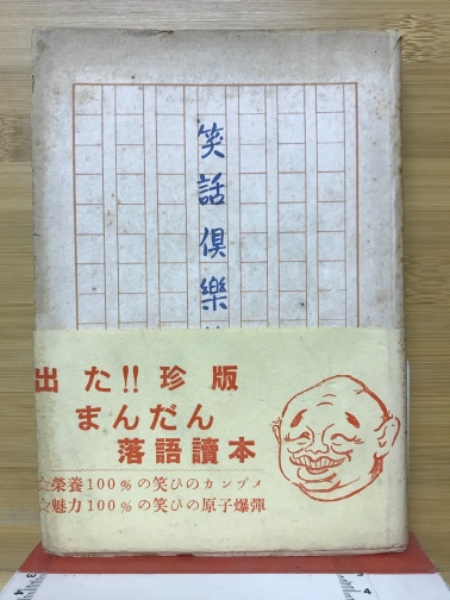 笑話倶樂
出た!!珍版
まんだん
落語讀本
☆榮養100%の笑ひのカンヅメ
☆魅力100%の笑ひの原子爆彈